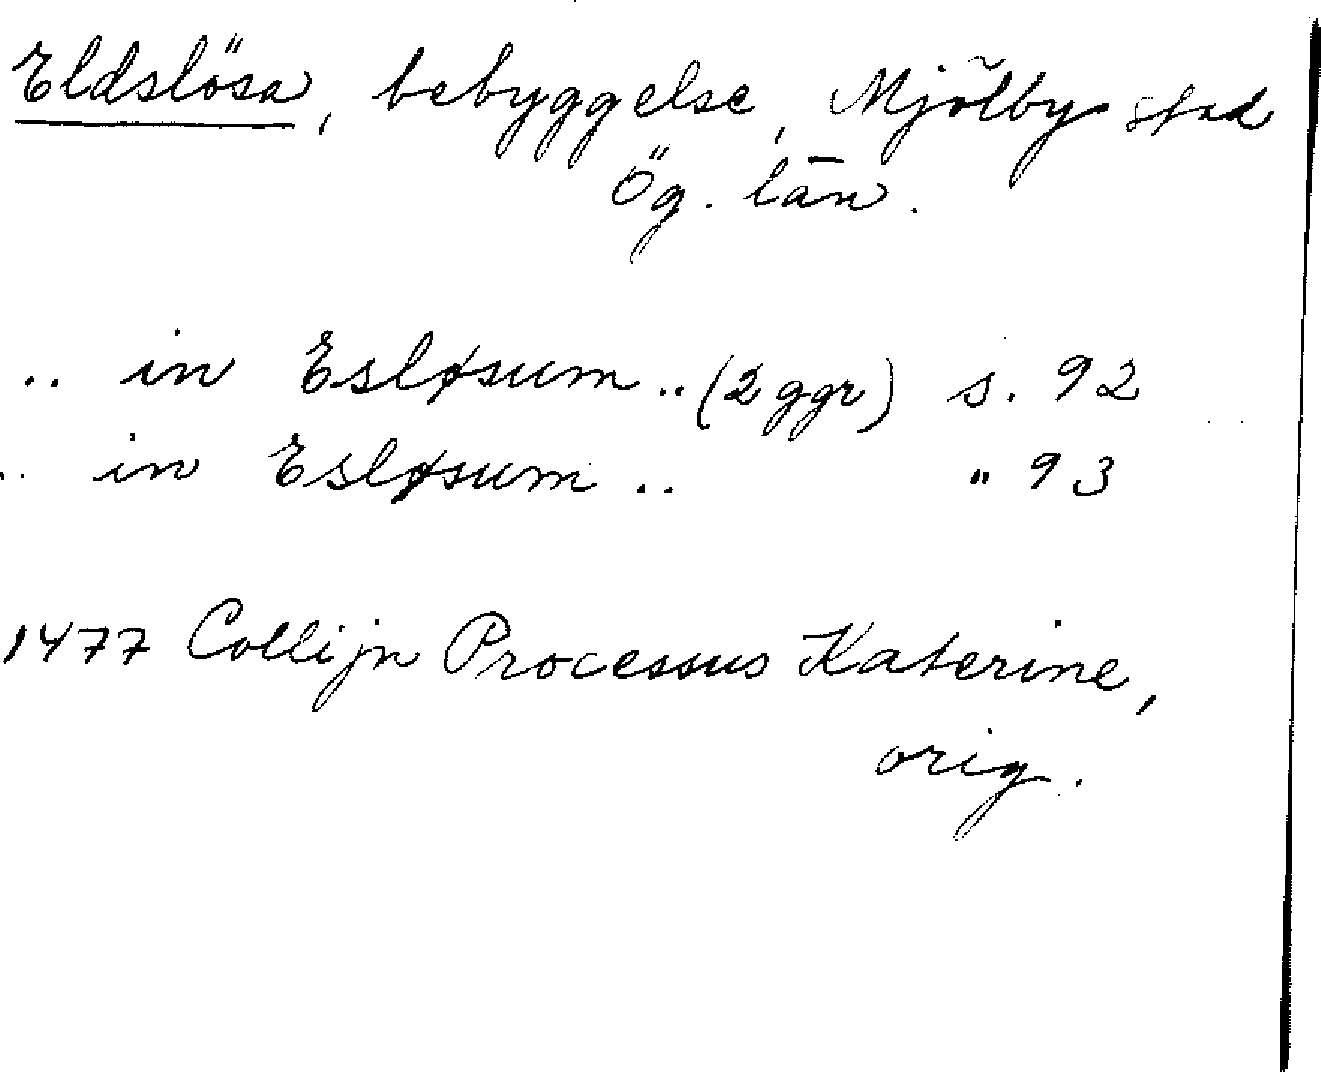 Eldslösa, bebyggelse, Mjölby stad
Ög. län.
.. in Esløsum.. (2 ggr) s. 92
.. in Esløsum .. " 93
1477 Collijn Processus Katerine,
orig.